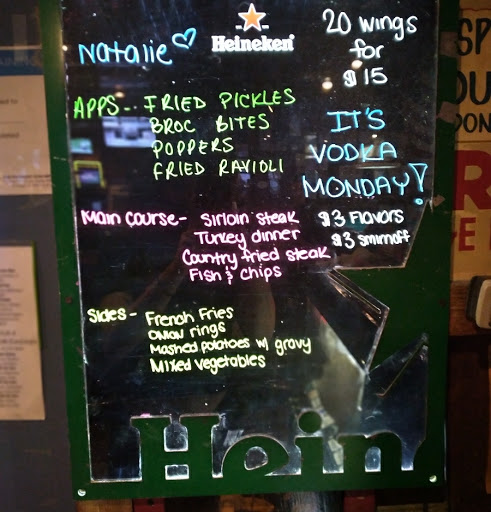 Natalie
Heineken
20 wings
for
$15
APPS - . FRIED PICKLES
BROC BITES
POPPERS
FRIED RAVIOLI
IT'S
VODKA
MONDAY!
$3 Flavors
$3 smirnoff
Main Course - Sirloin steak
Turkey dinner
Country fried steak
Fish & Chips
Sides - French Fries
Onion rings
Mashed potatoes w/ gravy
Mixed vegetables
Hein